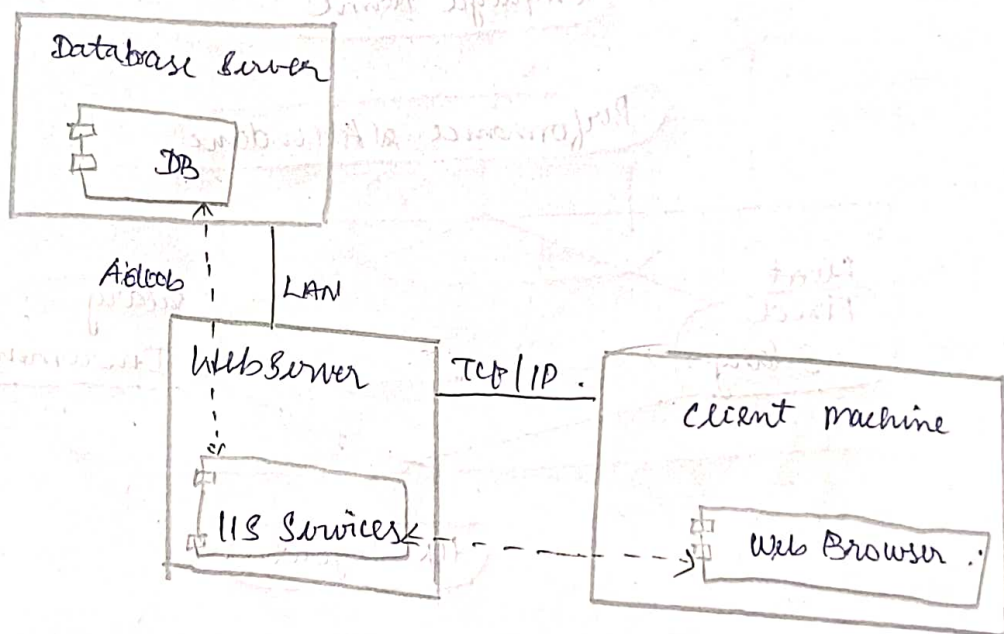 Database Server
DB
LAN
WebServer
TCP/IP .
Client Machine
IIS Services
Web Browser .